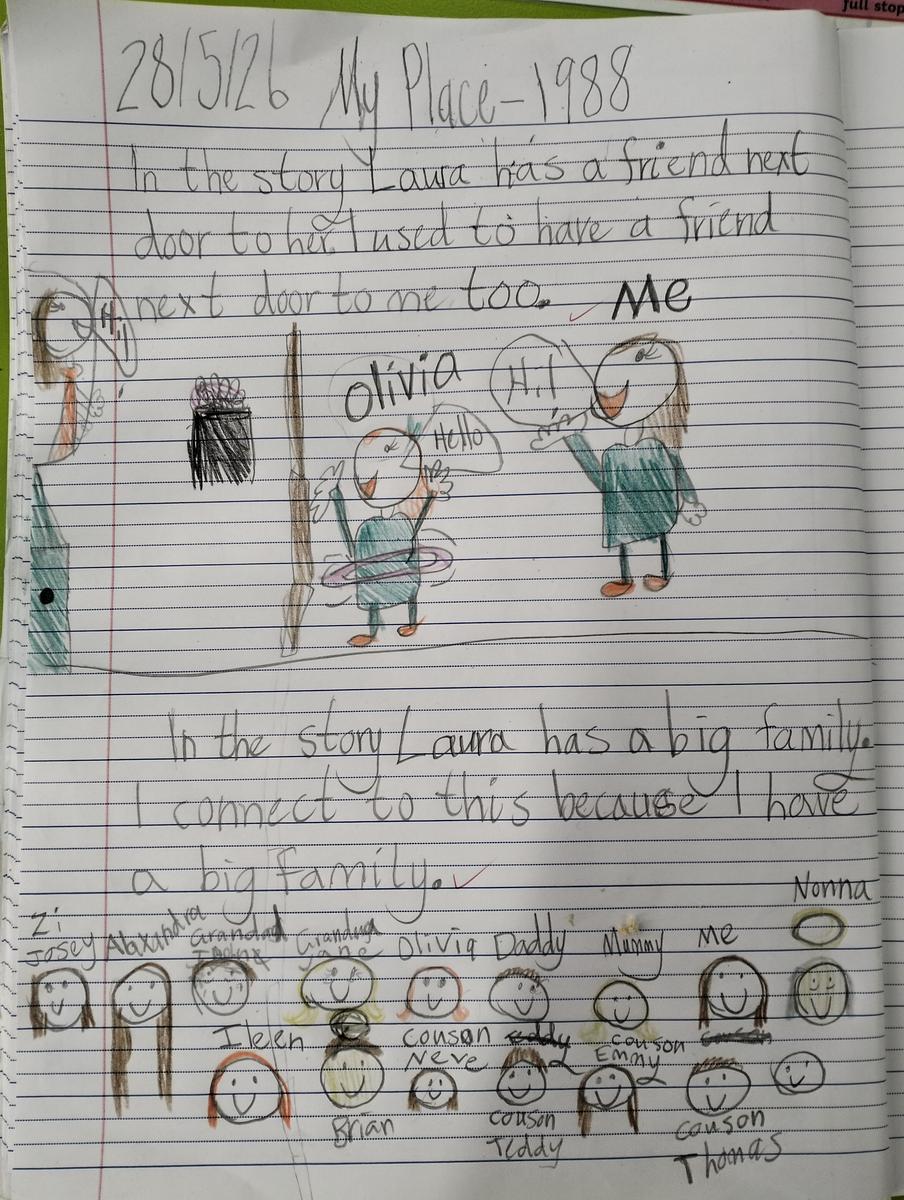 full stop
28/5/26 My Place-1988
In the story Laura has a friend next
door to her. I used to have a friend
next door to me too.
Me
Hi!
Olivia
Hello
Hi!
In the story Laura has a big family.
I connect to this because I have
a big family.
Nonna
Zi
Josey Alaxandra Grandad Grandma Jane Olivia Daddy Mummy Me
Ileen
couson Neve
couson Emmy
Brian
couson Teddy
couson Thomas